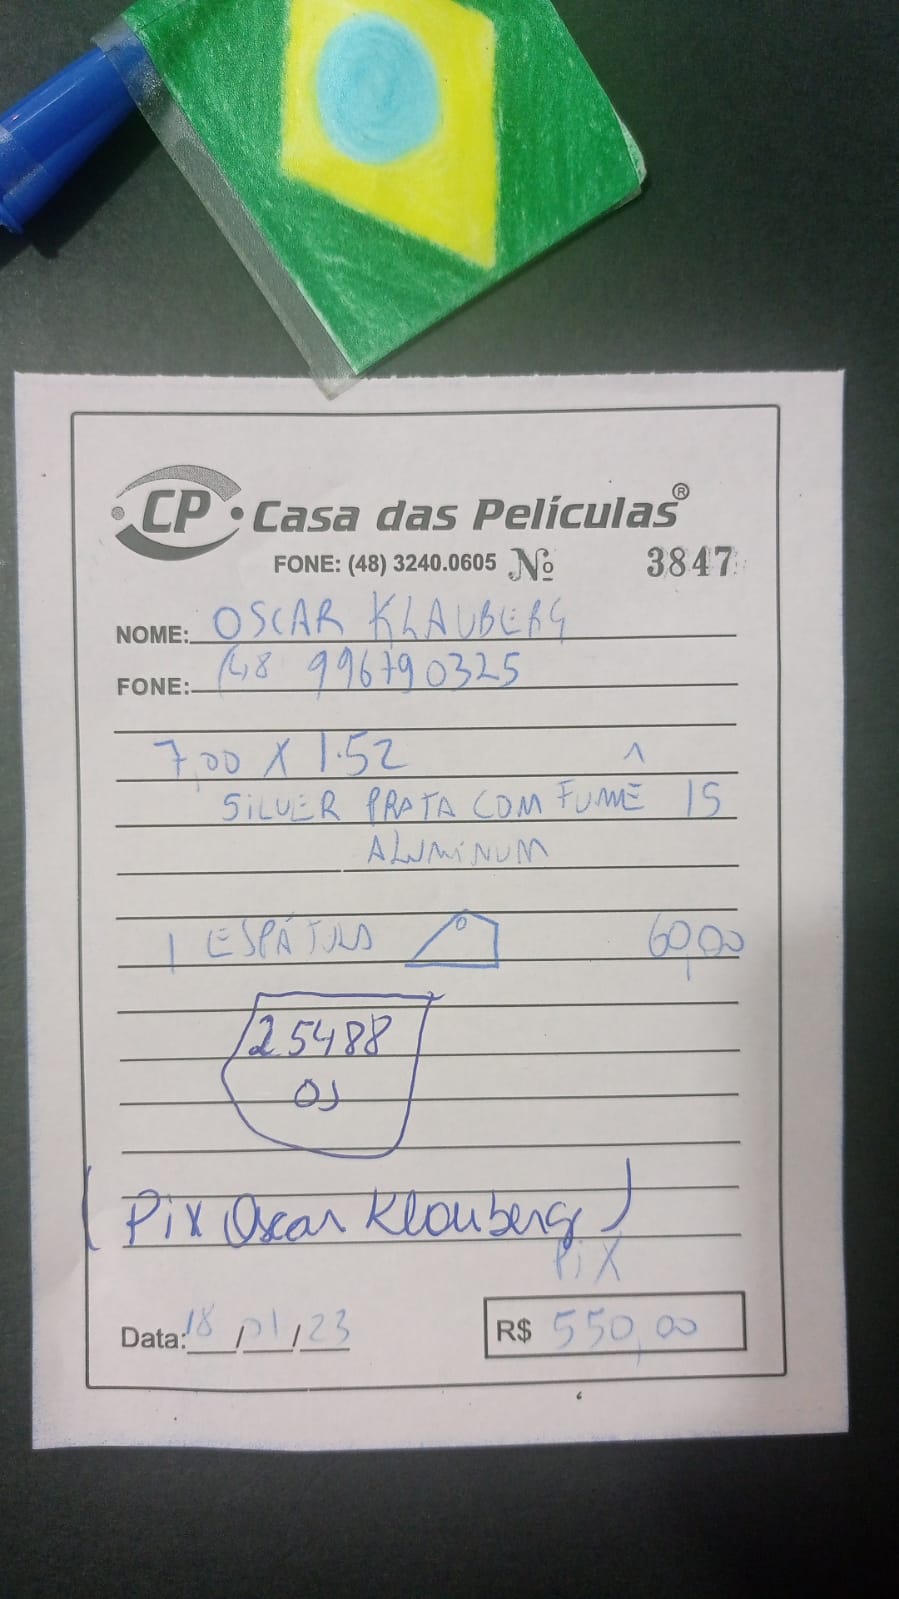 CP Casa das Películas®
FONE: (48) 3240.0605 Nº 3847
NOME: OSCAR KLAUBERG
FONE: (48 996790325
7,00 X 1.52
SILVER PRATA COM FUMÊ 15
ALUMINUM
1 ESPÁTULA 60,00
25488
OS
(Pix Oscar Klauberg)
PiX
Data: 18/01/23 R$ 550,00